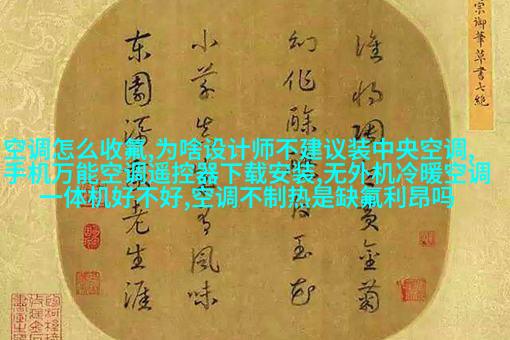 空调怎么收氟,为啥设计师不建议装中央空调,
手机万能空调遥控器下载安装,无外机冷暖空调
一体机好不好,空调不制热是缺氟利昂吗
宗御筆草書七絕
誰將陶黃金菊
幻作酴玉花
小草真有風味
東園添老生涯